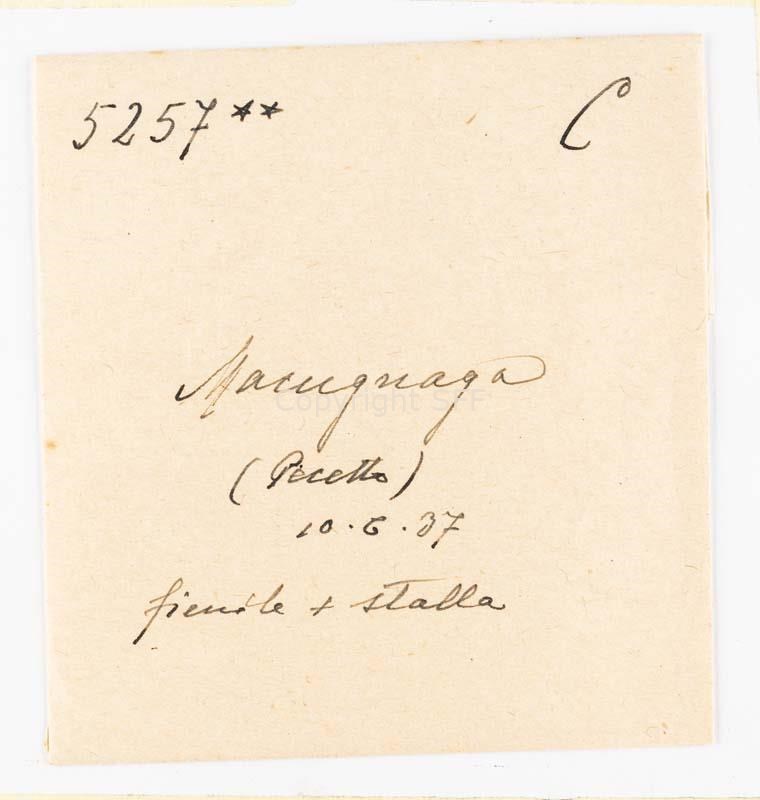 5257** C
Macugnaga
Copyright SFF
(Pecetto)
10.6.37
fienile + stalla